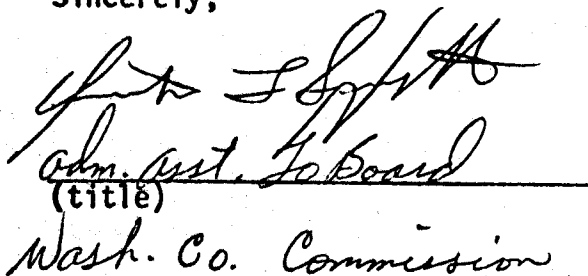 Sincerely,
adm. asst. To Board
(title)
Wash. Co. Commission